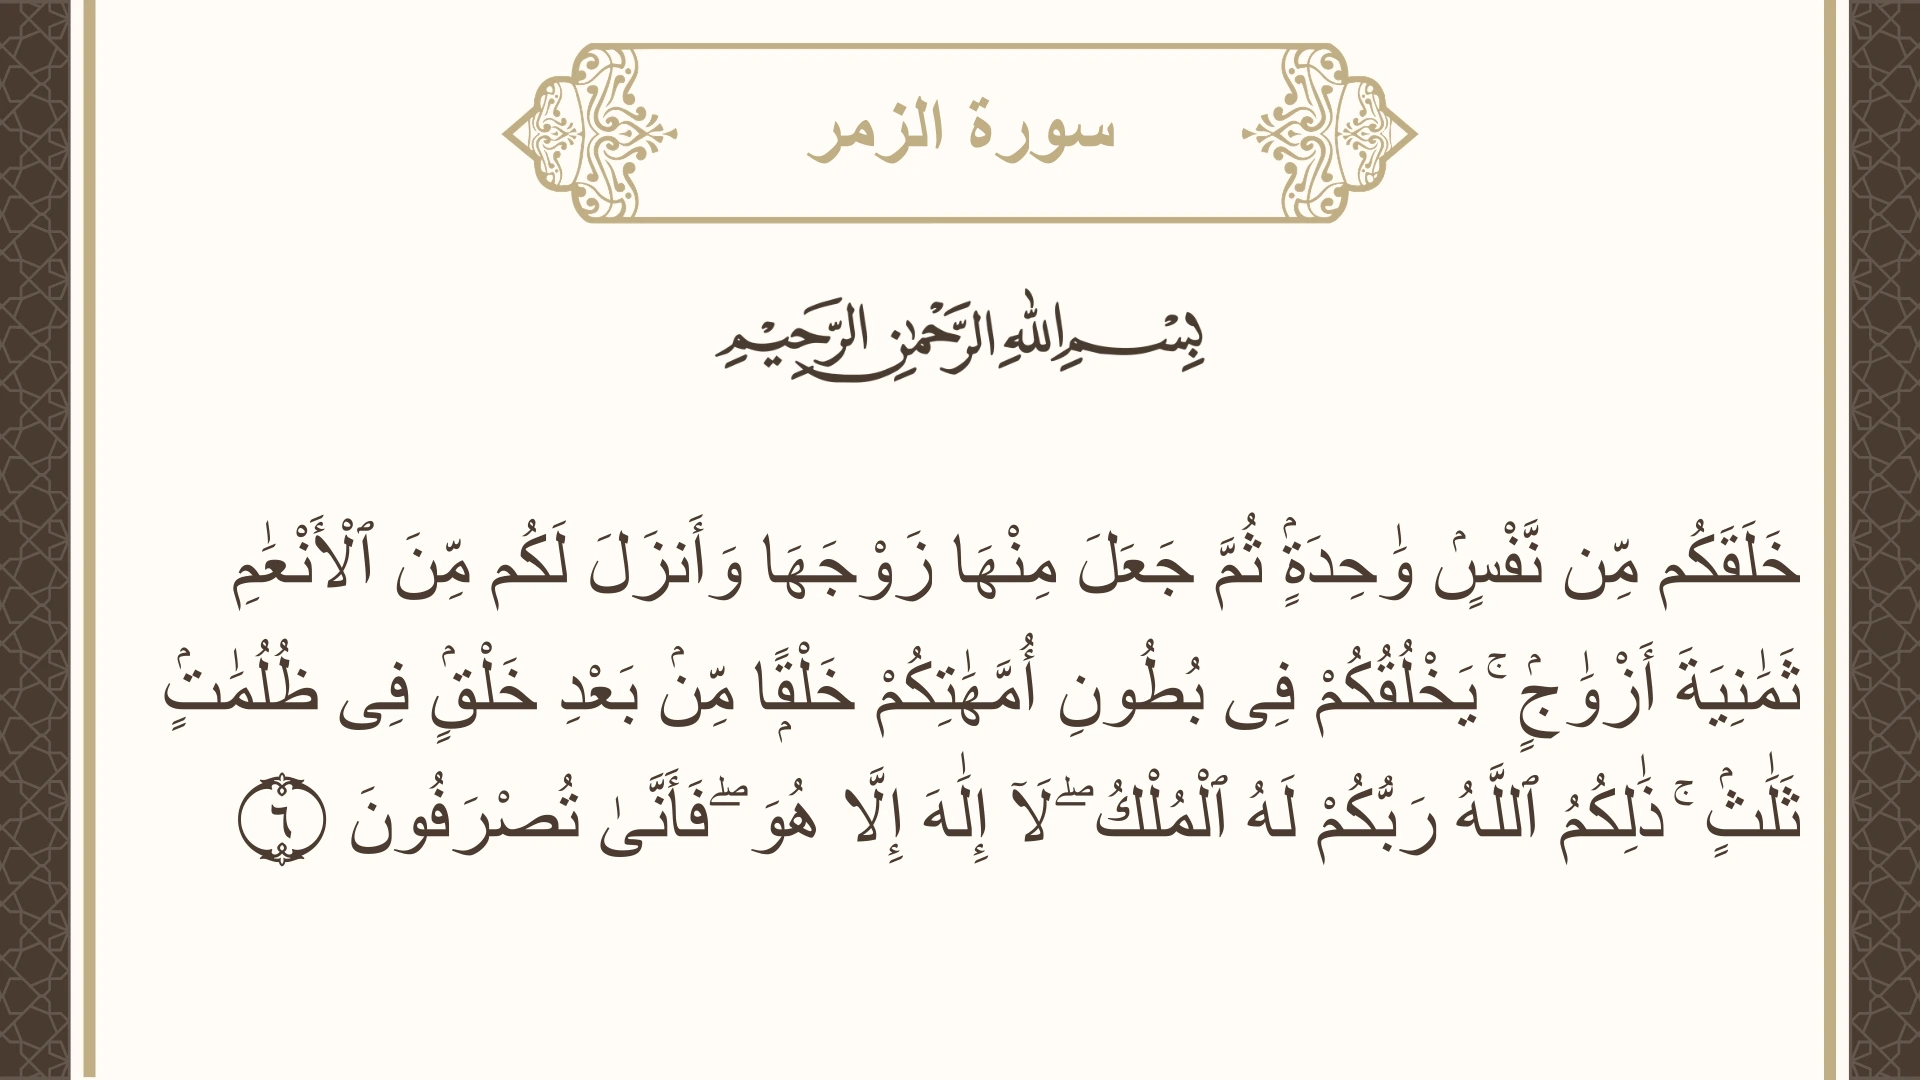 سورة الزمر
بِسْمِ اللهِ الرَّحْمٰنِ الرَّحِيْمِ
خَلَقَكُم مِّن نَّفْسٍۢ وَٰحِدَةٍۢ ثُمَّ جَعَلَ مِنْهَا زَوْجَهَا وَأَنزَلَ لَكُم مِّنَ ٱلْأَنْعَٰمِ
ثَمَٰنِيَةَ أَزْوَٰجٍۢ ۚ يَخْلُقُكُمْ فِى بُطُونِ أُمَّهَٰتِكُمْ خَلْقًۭا مِّنۢ بَعْدِ خَلْقٍۢ فِى ظُلُمَٰتٍۢ
ثَلَٰثٍۢ ۚ ذَٰلِكُمُ ٱللَّهُ رَبُّكُمْ لَهُ ٱلْمُلْكُ ۖ لَآ إِلَٰهَ إِلَّا هُوَ ۖ فَأَنَّىٰ تُصْرَفُونَ ٦